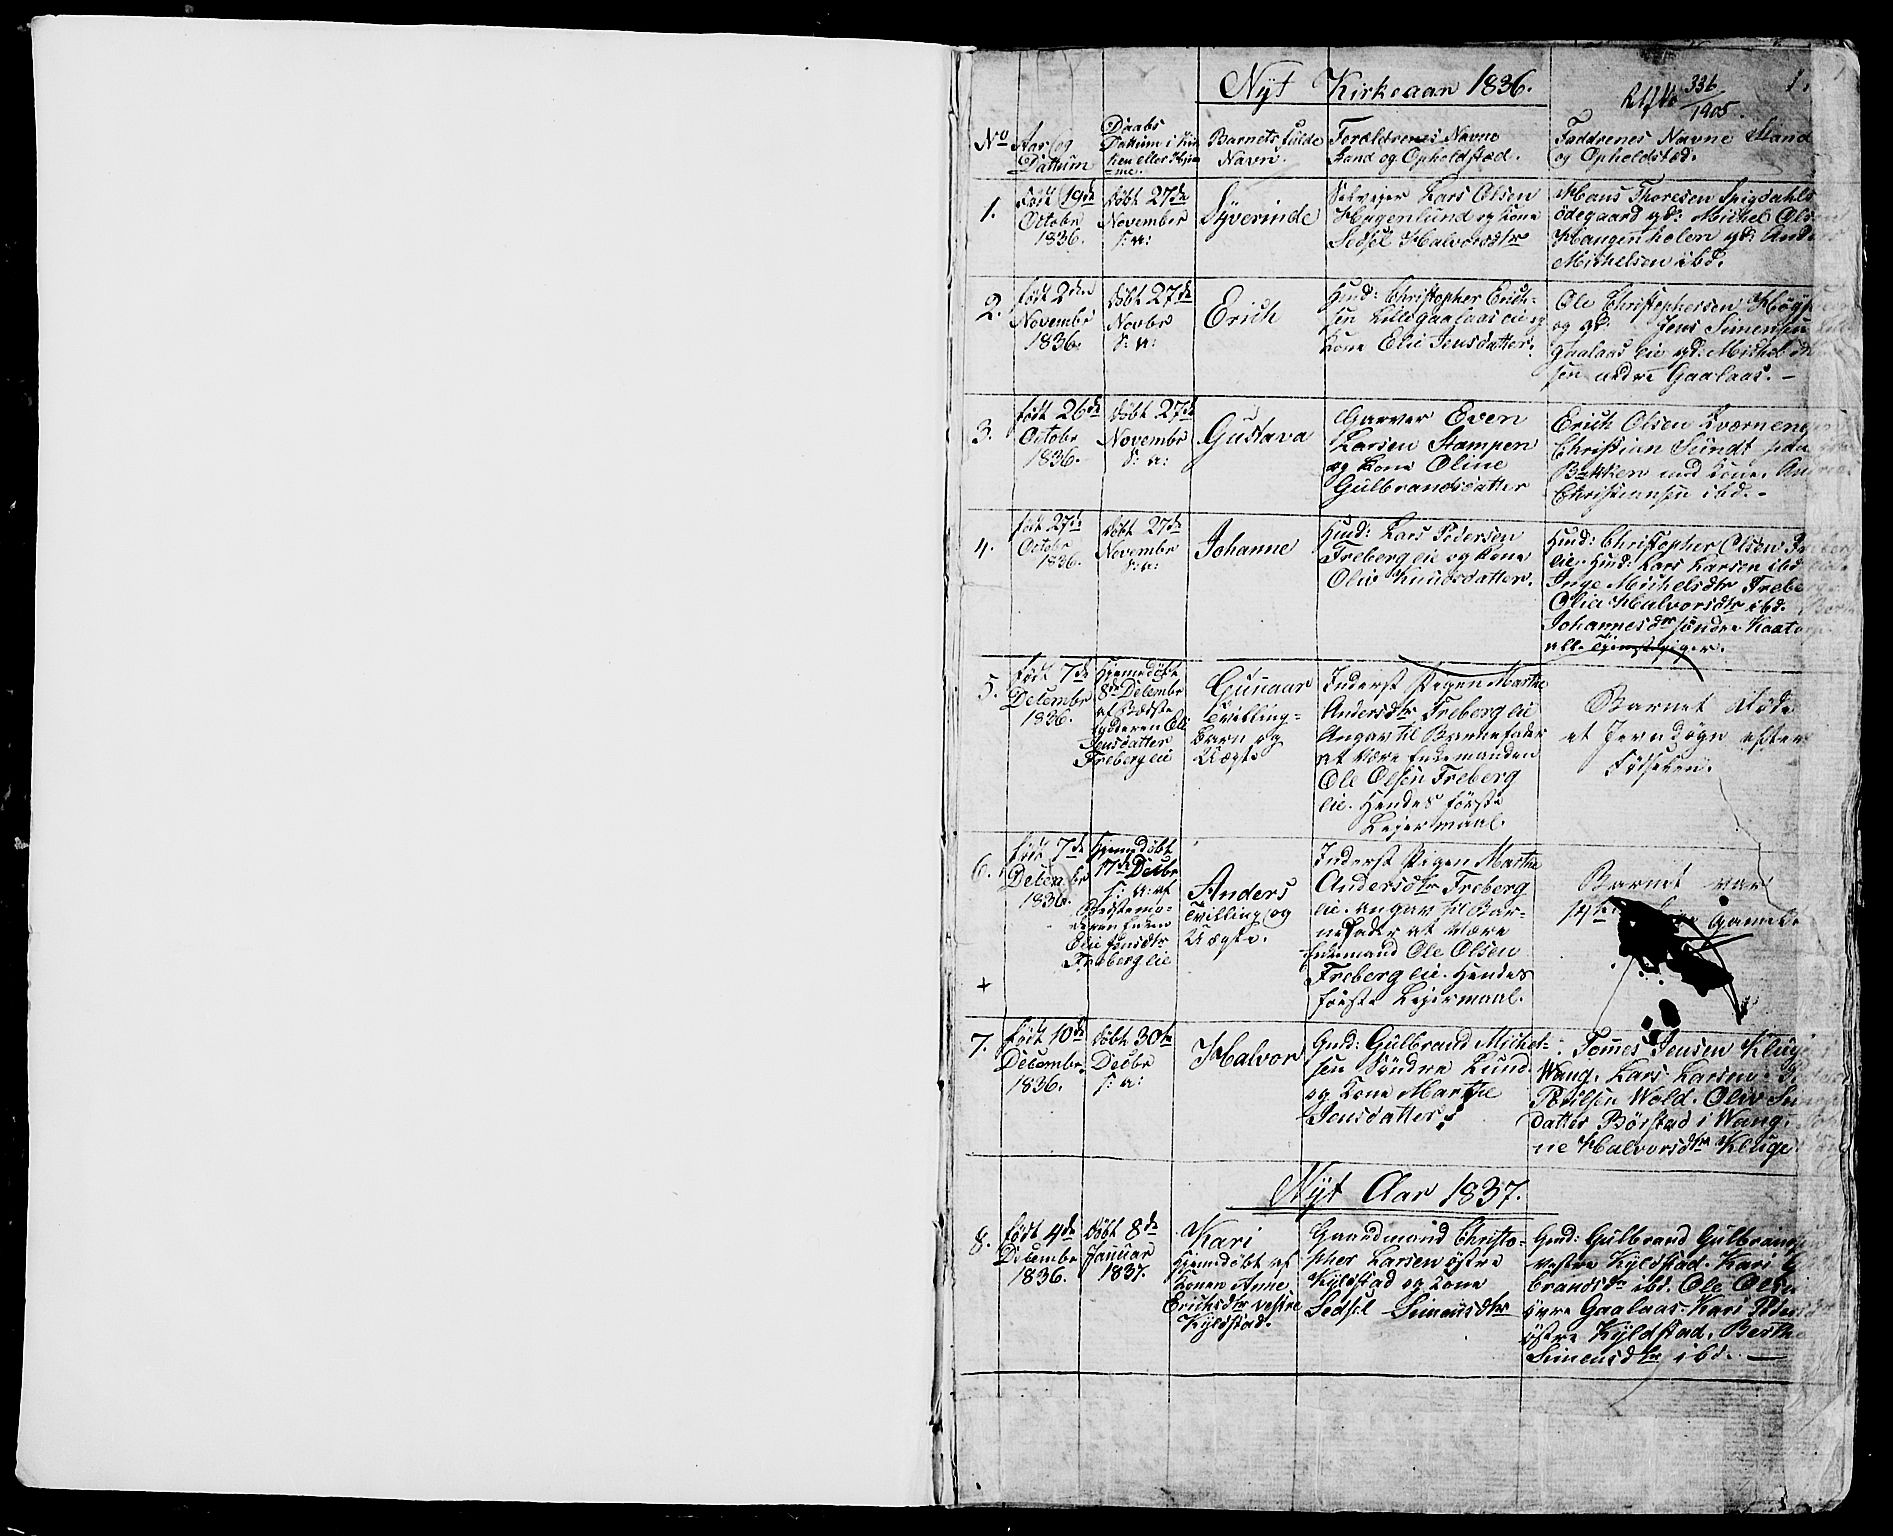 Nyt Kirkeaar 1836.
336
1905.
1.
No
Aar og
Dattum
Daabs
Dattum i Kir
ken eller Hjem
me.
Barnets fulde
Navn.
Forældrenes Navne
Stand og Opholdsted.
Faddrenes Navne Stand
og Opholdsted.
1.
født 19de
Octobr
1836.
döbt 27de
November
s: a:
Syverinde
Selveier Lars Olsen
Hagenlund og Kone
Sedsel Halvorsdtr
Hans Thoresen Spigdahls
ödegaard gd: Michel Olsen
Haugenholen gd: Anders
Michelsen ibd.
2.
født 2den
Novembr
1836.
döbt 27de
Novbr
s: a:
Erich
Huusd: Christopher Erich-
sen Lillegaalaas eie og
Kone Elie Jensdatter.
Ole Christophersen
og gd: Jens Simensen
Gaalaas eie gd: Michel
sen nedre Gaalaas. -
3.
født 26de
Octobr
1836.
döbt 27de
Novembr
s: a:
Gustava
Garver Even
Larsen Stampen
og Kone Oline
Gulbrandsdatter
Erich Olsen Kværnengen
Christian Sundt
Bakken med Kone.
Christiansen ibd. -
4.
født 27de
Octobr
1836.
döbt 27de
Novembr
s: a:
Johanne
Huusd: Lars Pedersen
Freberg eie og Kone
Oliv Knudsdatter.
Huusd: Christopher Olsen Freberg
eie. Huusd: Lars Larsen ibd
Inge Michelsdtr Freberg
Olia Halvorsdtr ibd.
Johannesdr söndre Kaatorp
alle Tjenestpiger.
5.
født 7de
Decembr
1836.
Hjemedöbt
8de Decembr
af Bedste
moderen Eli
Jensdatter
Freberg eie
Gunnar
Tvilling-
barn og
Uægte
Inderst Pigen Marthe
Andersdtr Freberg eie
Angav til Barnefader
at være Enkemanden
Ole Olsen Freberg
eie. Hendes første
Leiermaal.
Barnet döde
et Jevndögn efter
Födselen.
6.
født 7de
Decembr
1836.
Hjemedöbt
17de Decbr
s: a: af
Bedstemo-
deren Enken
Elie Jensdtr
Freberg eie
+
Anders
Tvilling og
Uægte.
Inderst Pigen Marthe
Andersdtr Freberg
eie. angav til Bar-
nefader at være
Enkemand Ole Olsen
Freberg eie. Hendes
første Leiermaal.
Barnet var
14ten
7.
født 10de
Decembr.
1836.
döbt 30te
Decbr
s: a:
Halvor
Gmd: Gulbrand Michel-
sen Söndre Lund
og Kone Marthe
Jensdatter.
Tomes Jensen Kluge
Wang. Lars Larsen
Poulsen Wold. Oliv
datter Börstad i Wang.
ne Halvorsdtr Kluge
Nyt Aar 1837.
8.
født 4de
Decembr
1836.
döbt 8de
Januar
1837.
Kari
Hjemedöbt af
Konen Anne
Erichsdtr vestre
Kyldstad.
Gaardmand Christo-
pher Larsen östre
Kyldstad og Kone
Sedsel Simensdtr
Gmd: Gulbrand Gulbrandsen
vestre Kyldstad. Kari
brandsdr ibd. Ole Olsen
Gaalaas. Kari
östre Kyldstad. Berthe
Simensdtr ibd. -